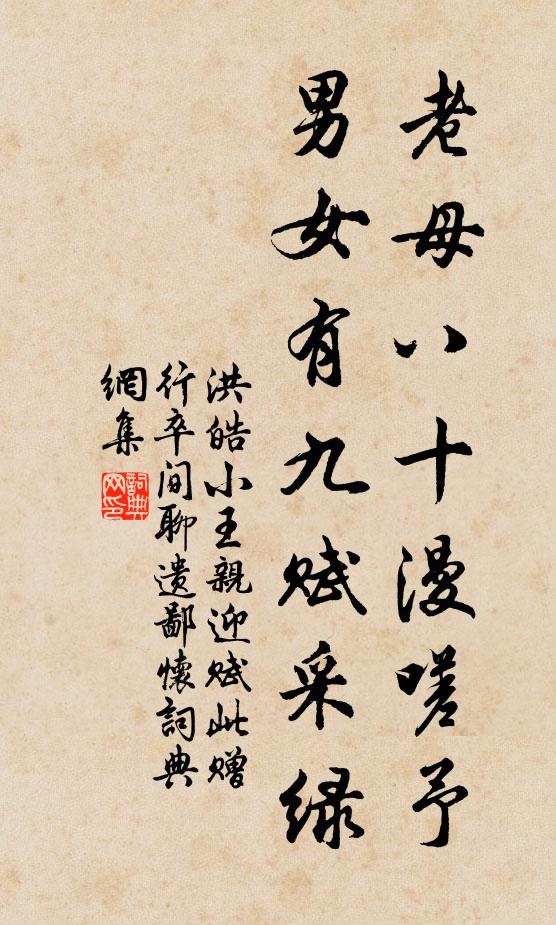 老母八十漫嗟予
男女有九赋采绿
洪皓小王親迎赋此赠
行卒间聊遗鄙懷詞典
網集
詞典
网印